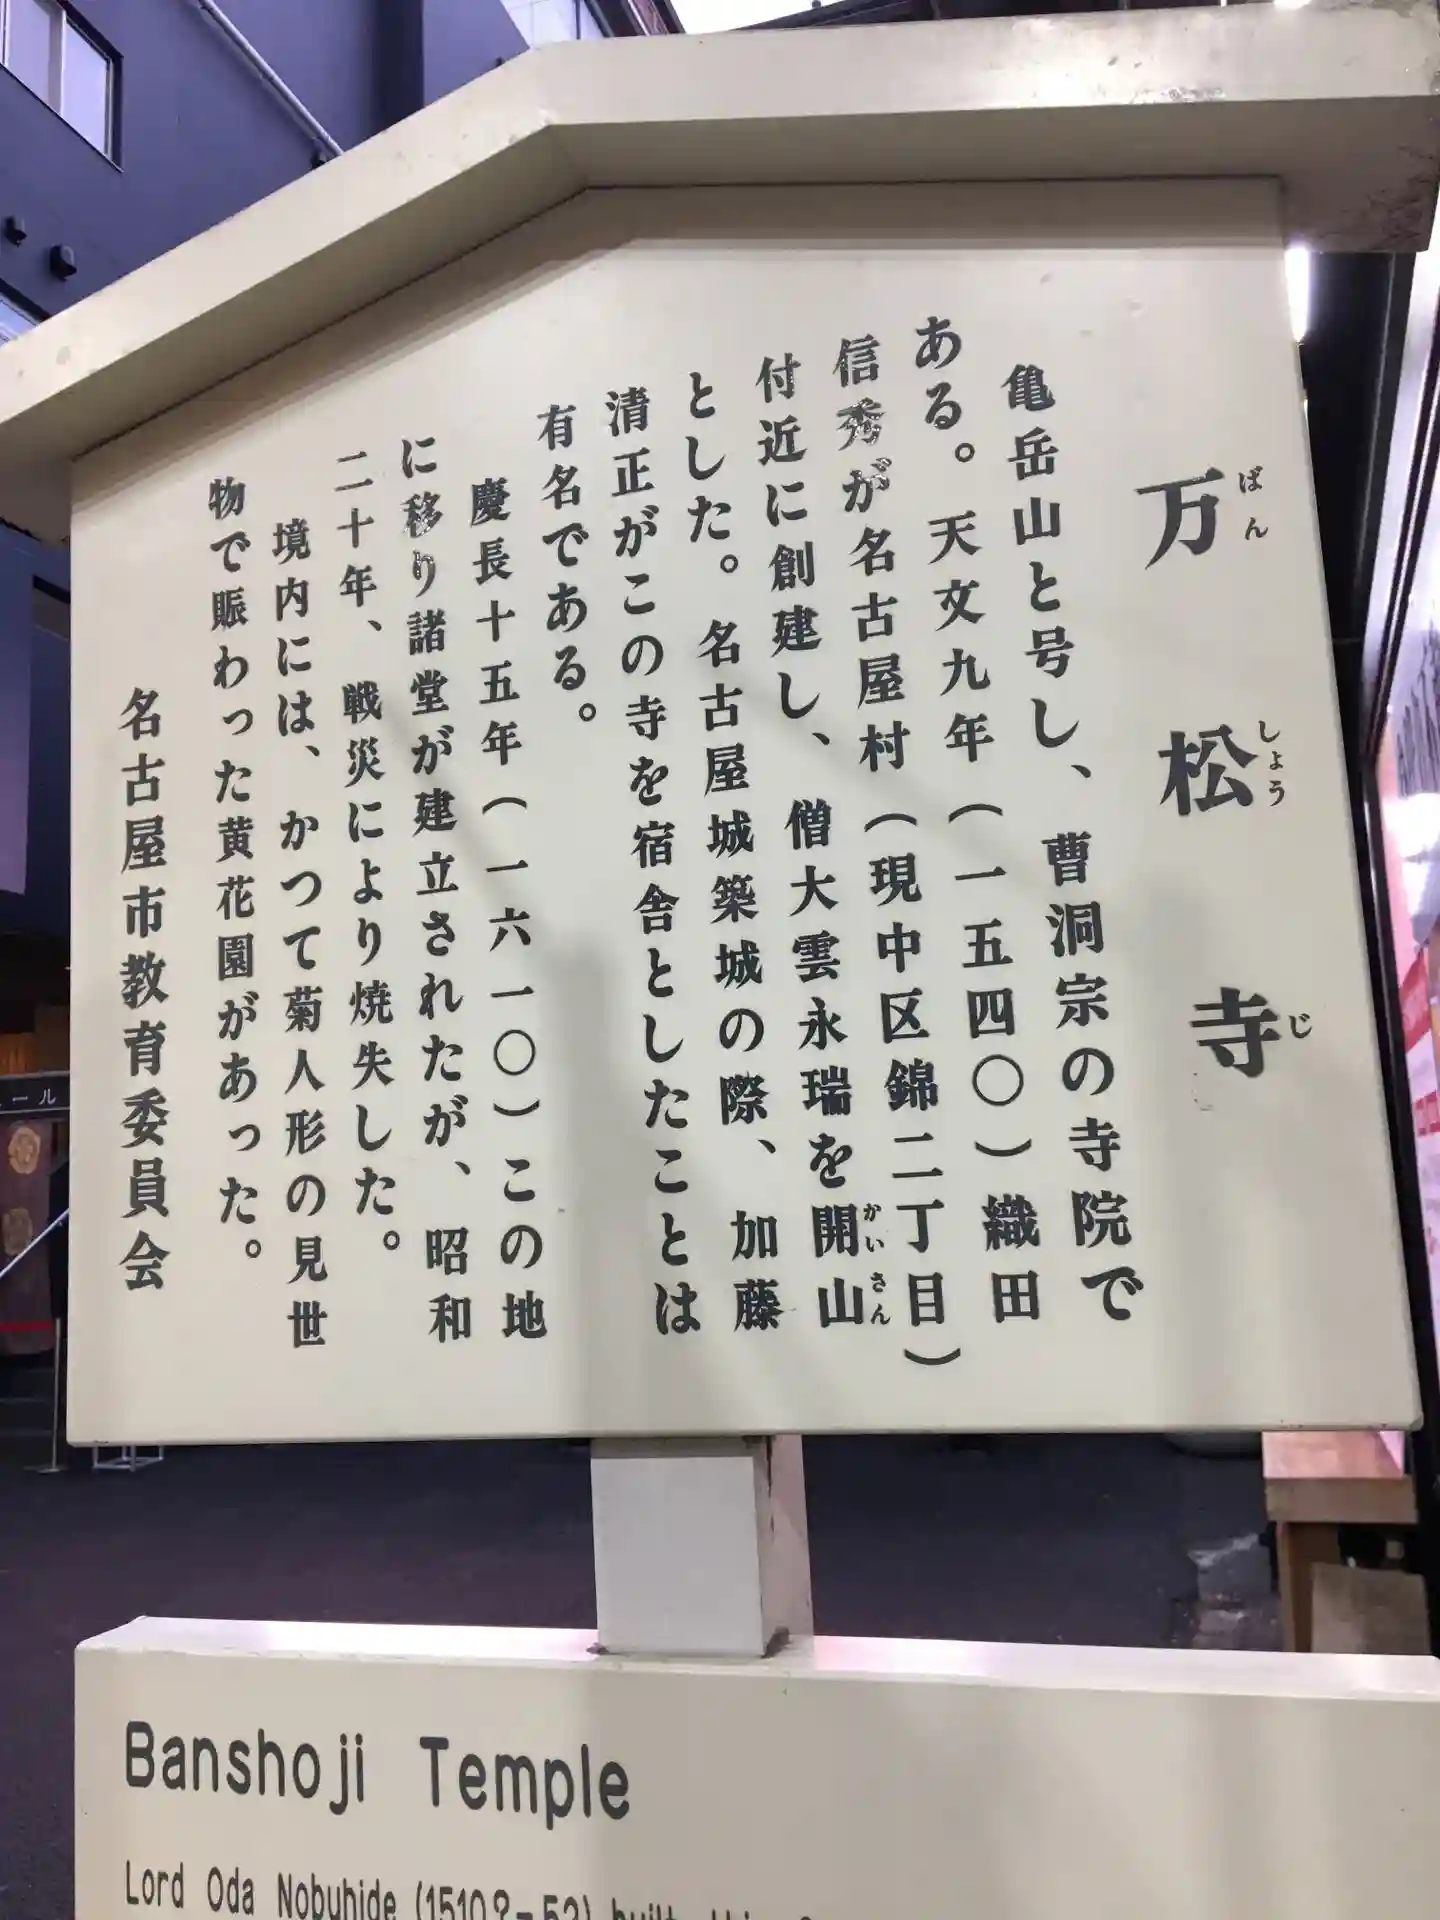 万松寺
ばんしょうじ
亀岳山と号し、曹洞宗の寺院で
ある。天文九年（一五四〇）織田
信秀が名古屋村（現中区錦二丁目）
付近に創建し、僧大雲永瑞を開山
かいさん
とした。名古屋城築城の際、加藤
清正がこの寺を宿舎としたことは
有名である。
慶長十五年（一六一〇）この地
に移り諸堂が建立されたが、昭和
二十年、戦災により焼失した。
境内には、かつて菊人形の見世
物で賑わった黄花園があった。
名古屋市教育委員会
Banshoji Temple
Lord Oda Nobuhide (1510?-52) built this